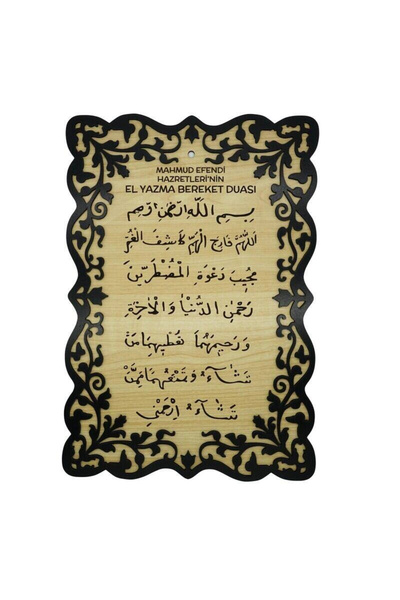 MAHMUD EFENDİ
HAZRETLERİ'NİN
EL YAZMA BEREKET DUASI
بِسْمِ اللّٰهِ الرَّحْمٰنِ الرَّحِيمِ
اَللّٰهُمَّ فَارِجَ الْهَمِّ كَاشِفَ الْغَمِّ
مُجِيبَ دَعْوَةِ الْمُضْطَرِّينَ
رَحْمٰنَ الدُّنْيَا وَالْاٰخِرَةِ
وَرَحِيمَهُمَا تُعْطِيهِمَا مَنْ
تَشَاءُ وَتَمْنَعُهُمَا مِمَّنْ
تَشَاءُ اِرْحَمْنِي